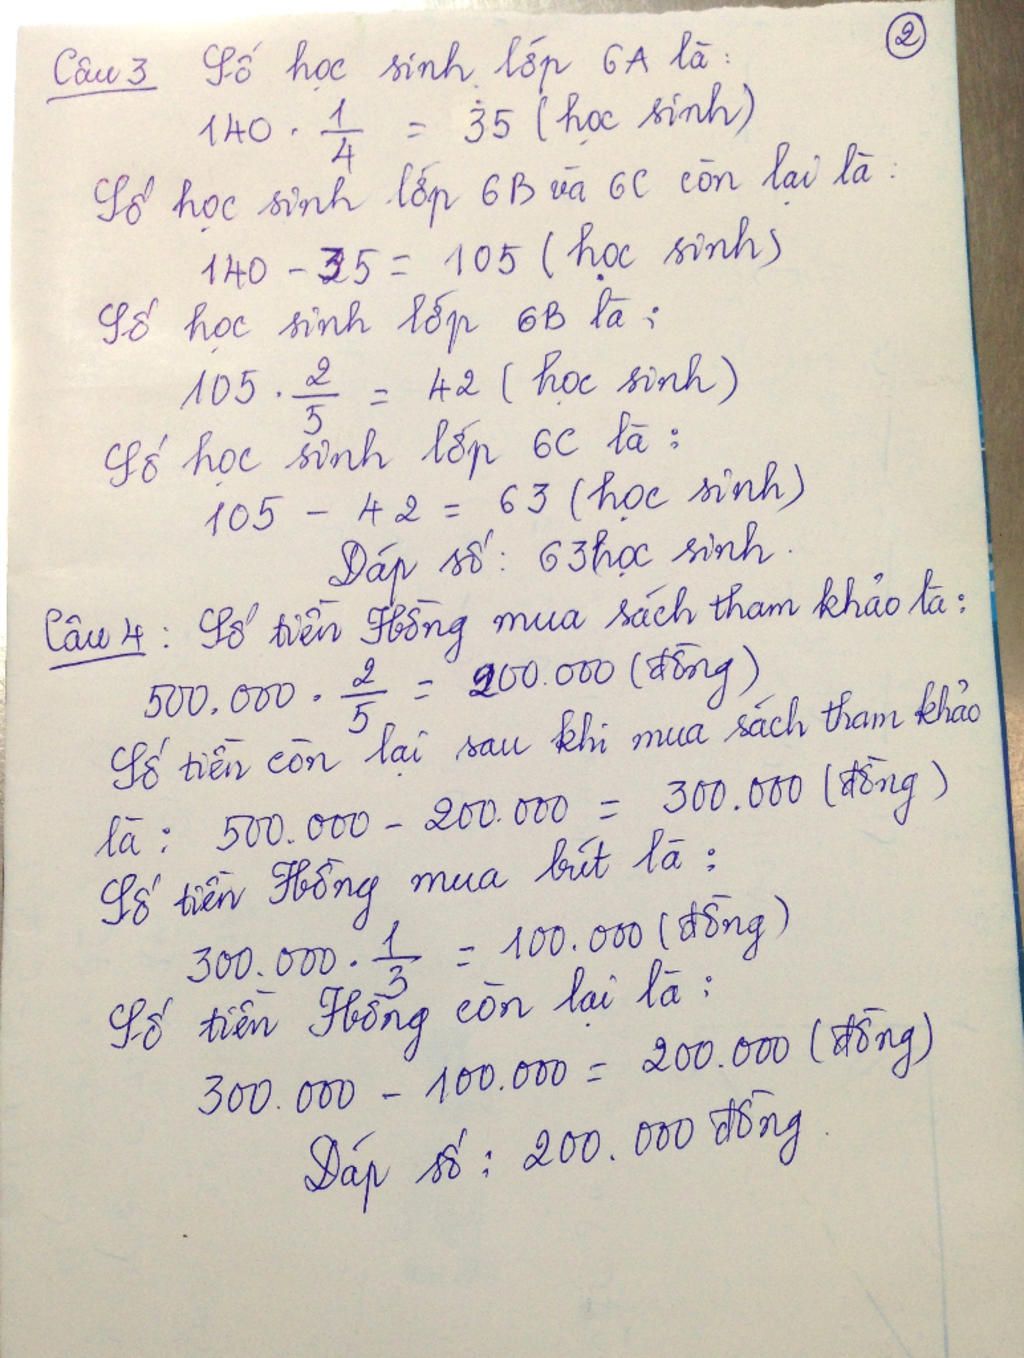 ②
Câu 3 Số học sinh lớp 6A là:
140 . 1/4 = 35 (học sinh)
Số học sinh lớp 6B và 6C còn lại là:
140 - 35 = 105 (học sinh)
Số học sinh lớp 6B là:
105 . 2/5 = 42 (học sinh)
Số học sinh lớp 6C là:
105 - 42 = 63 (học sinh)
Đáp số: 63 học sinh.
Câu 4: Số tiền Hồng mua sách tham khảo là:
500.000 . 2/5 = 200.000 (đồng)
Số tiền còn lại sau khi mua sách tham khảo
là: 500.000 - 200.000 = 300.000 (đồng)
Số tiền Hồng mua bút là:
300.000 . 1/3 = 100.000 (đồng)
Số tiền Hồng còn lại là:
300.000 - 100.000 = 200.000 (đồng)
Đáp số: 200.000 đồng.